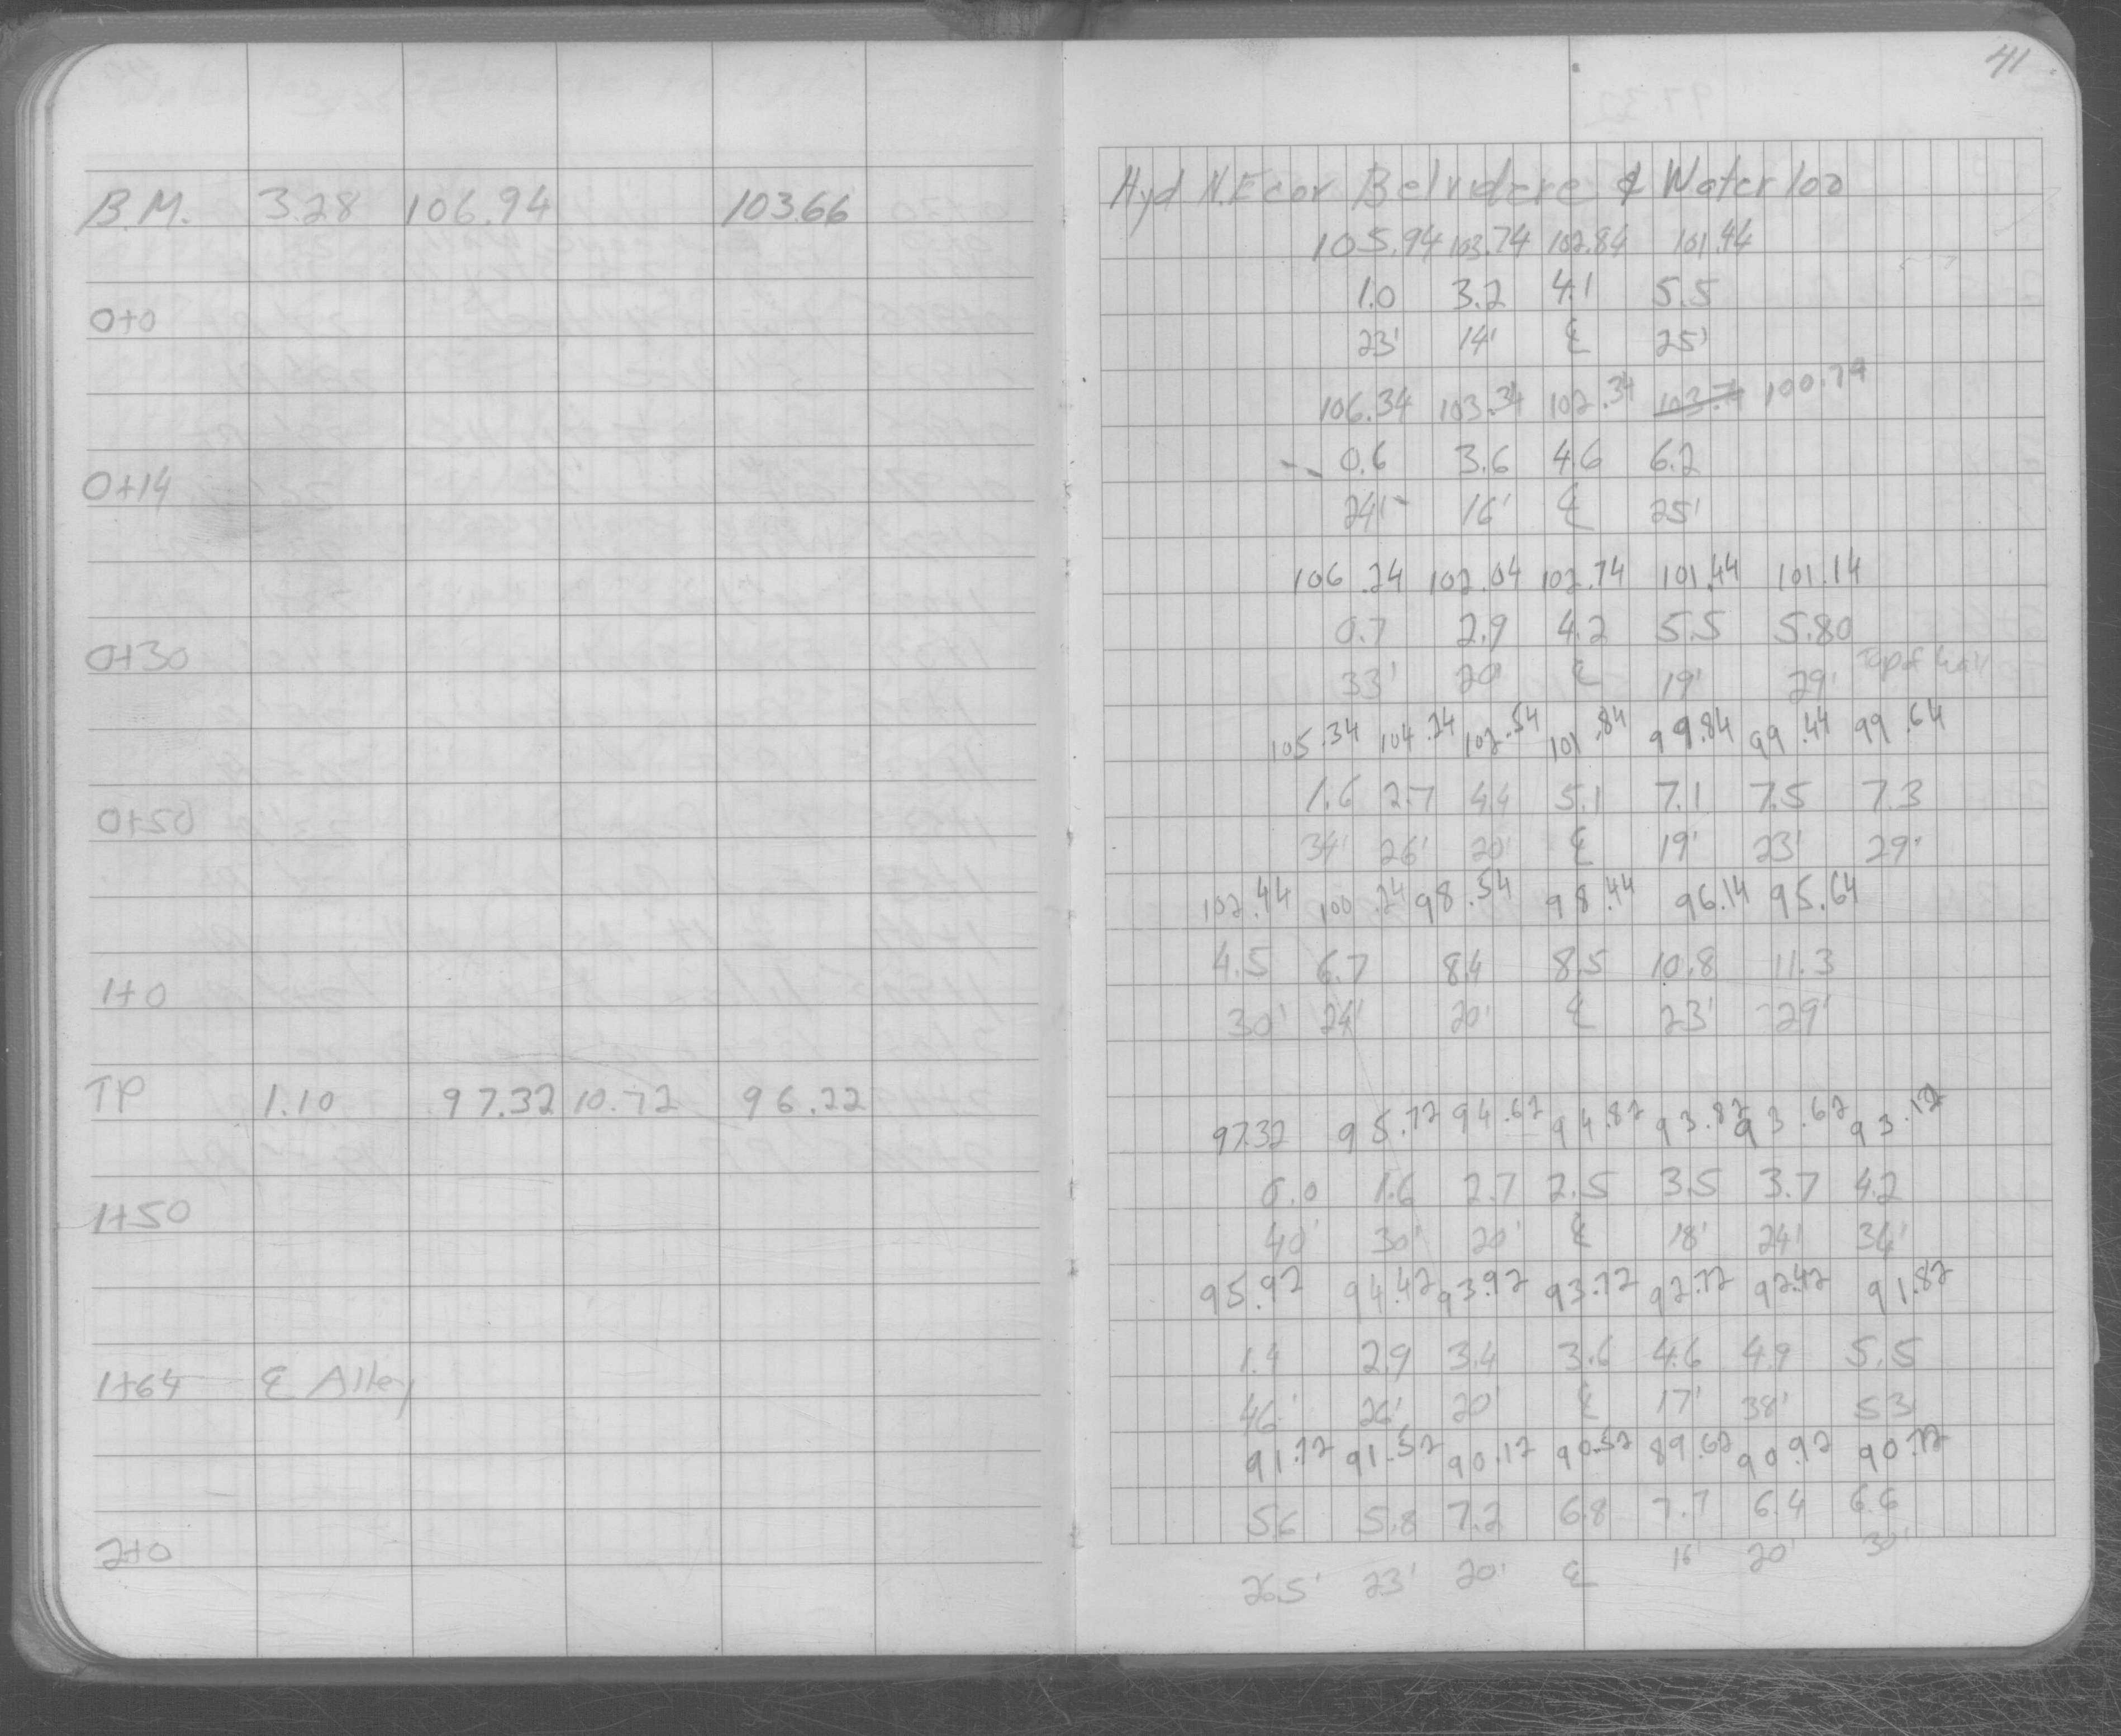 41
B.M. 3.28 106.94 103.66 Hyd N.E cor Belvidere & Waterloo
105.94 103.74 102.84 101.44
1.0 3.2 4.1 5.5
0+0
23' 14' ℄ 25'
106.34 103.34 102.34 103.74 100.74
0.6 3.6 4.6 6.2
0+14
24' 16' ℄ 25'
106.24 102.04 102.74 101.44 101.14
0.7 2.9 4.2 5.5 5.80
0+30
33' 20' ℄ 19' 29' Top of Wall
105.34 104.24 102.54 101.84 99.84 99.44 99.64
1.6 2.7 4.4 5.1 7.1 7.5 7.3
0+50
34' 26' 20' ℄ 19' 23' 29'
102.44 100.24 98.54 98.44 96.14 95.64
4.5 6.7 8.4 8.5 10.8 11.3
1+0
30' 24' 20' ℄ 23' 29'
TP 1.10 97.32 10.72 96.22
97.32 95.72 94.62 94.82 93.82 93.62 93.12
0.0 1.6 2.7 2.5 3.5 3.7 4.2
1+50
40' 30' 20' ℄ 18' 24' 34'
95.92 94.42 93.92 93.72 92.72 92.42 91.82
1.4 2.9 3.4 3.6 4.6 4.9 5.5
1+64 ℄ Alley
46' 26' 20' ℄ 17' 38' 53
91.72 91.52 90.12 90.52 89.62 90.92 90.72
5.6 5.8 7.2 6.8 7.7 6.4 6.6
2+0
26.5' 23' 20' ℄ 16' 20' 30'